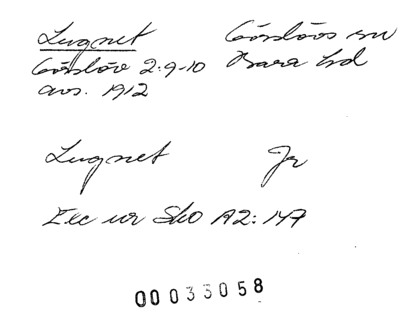 Lugnet Görslövs sn
Görslöv 2:9-10 Bara hd
avs. 1912
Lugnet Jr
Exc ur Sko A2: 147
00033058